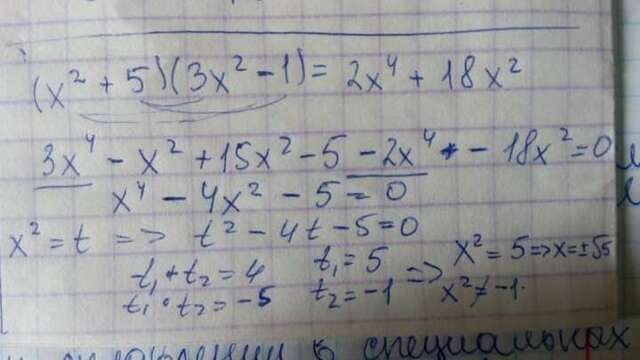 (x² + 5)(3x² - 1) = 2x⁴ + 18x²
3x⁴ - x² + 15x² - 5 - 2x⁴ - 18x² = 0
x⁴ - 4x² - 5 = 0
x² = t => t² - 4t - 5 = 0
t₁ + t₂ = 4 t₁ = 5 => x² = 5 => x = ±√5
t₁ · t₂ = -5 t₂ = -1 x² ≠ -1.
в специальных